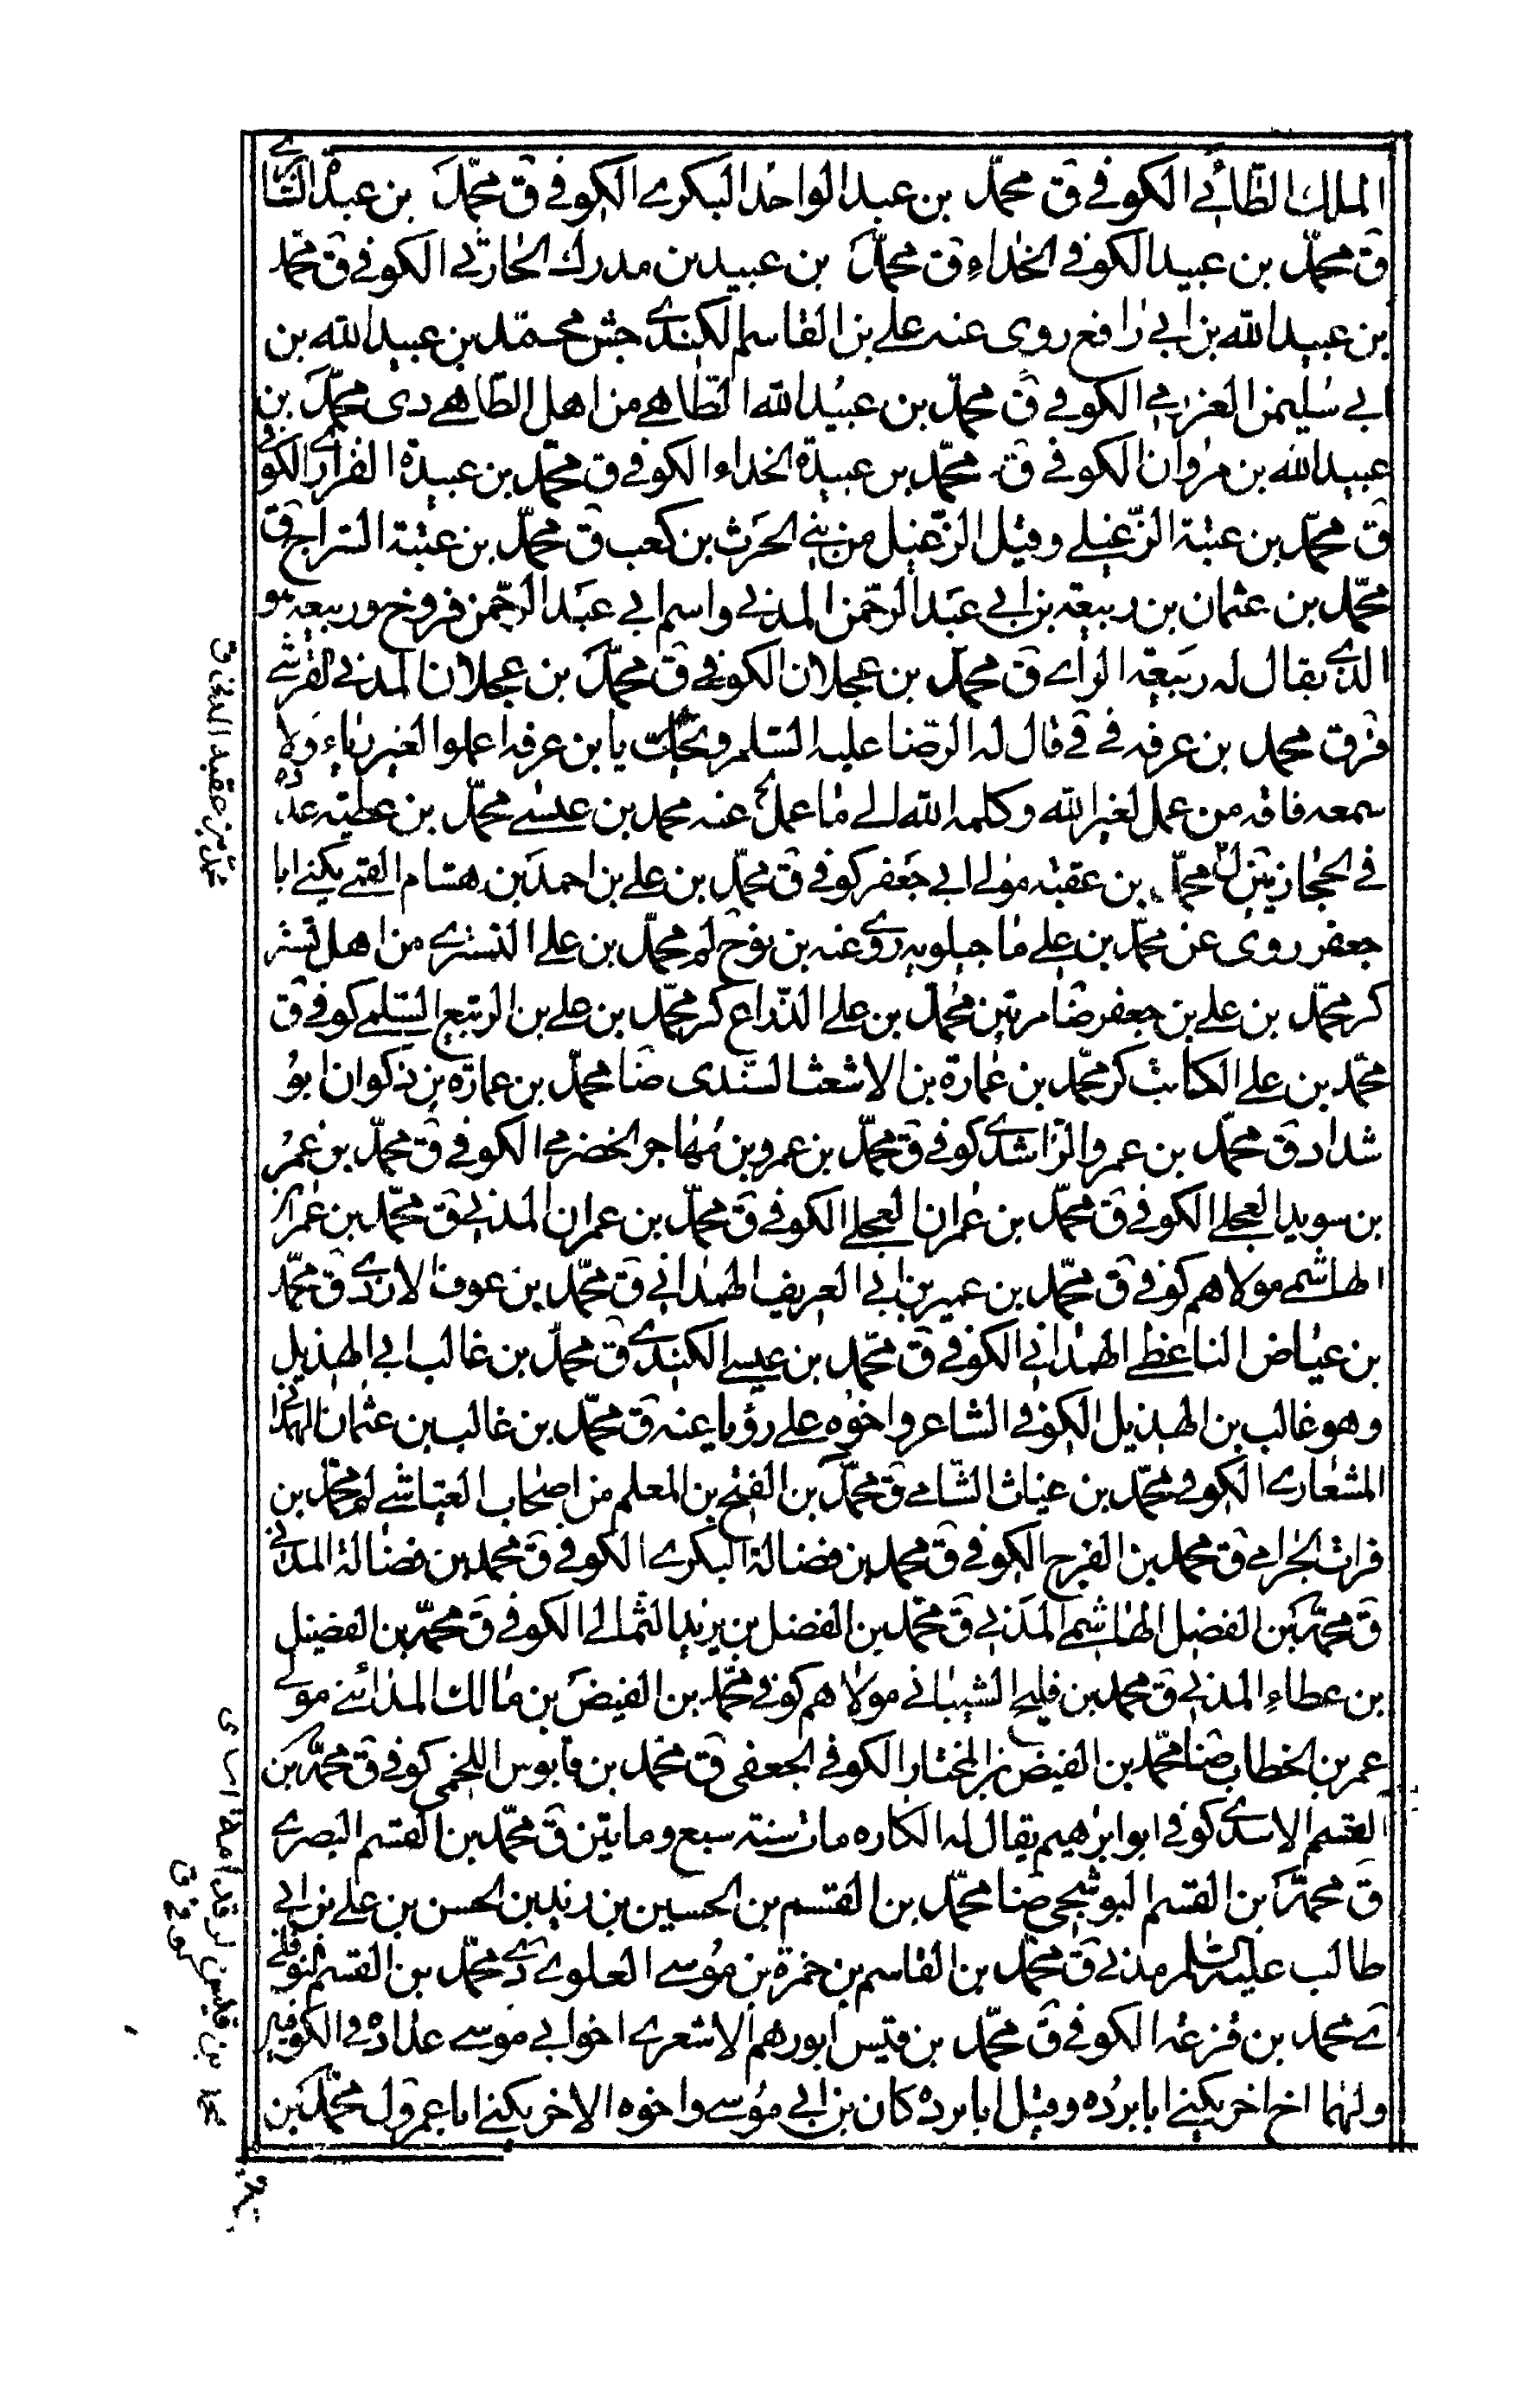 الملك الطائي الكوفي ق محمد بن عبد الواحد البكري الكوفي ق محمد بن عبد
ق محمد بن عبيد الكوفي الحذاء ق محمد بن عبيد بن مدرك الحارثي الكوفي ق محمد
بن عبيد الله بن ابي رافع روى عنه علي بن القاسم الكندي جش محمد بن عبيد الله بن
ابي سليمن العزرمي الكوفي ق محمد بن عبيد الله الطاهي من اهل الطاهي دى محمد بن
عبيد الله بن مروان الكوفي ق محمد بن عبيدة الحذاء الكوفي ق محمد بن عبيدة الفراري الكوفي
ق محمد بن عتبة الزعبلي وقيل الزعبل من بني الحرث بن كعب ق محمد بن عتبة السراج ق
محمد بن عثمان بن ربيعة بن ابي عبد الرحمن المدني واسم ابي عبد الرحمن فروخ وربيعة هو
الذي يقال له ربيعة الراي ق محمد بن عجلان الكوفي ق محمد بن عجلان المدني القرشي
ق ق محمد بن عرفه في ق قال له الرضا عليه السلم ويحك يا بن عرفه اعملوا لغير رياء ولا
سمعه فانه من عمل لغير الله وكله الله الى ما عمل عنه محمد بن عيسى محمد بن عطيه
في الحجاز محمد بن عقبة مولى ابي جعفر كوفي ق محمد بن علي بن احمد بن هشام القمي يكنى ابا
جعفر روى عن محمد بن علي ماجيلويه روى عنه بن نوح لم محمد بن علي التستري من اهل تستر
كر محمد بن علي بن جعفر ضا مرتين محمد بن علي الذراع كر محمد بن علي بن الربيع السلمي كوفي ق
محمد بن علي الكاتب كر محمد بن عمارة بن الاشعث السندى ضا محمد بن عماره بن ذكوان ابو
شداد ق محمد بن عمرو الراشدي كوفي ق محمد بن عمرو بن مهاجر الحضرمي الكوفي ق محمد بن عمر
بن سويد العجلي الكوفي ق محمد بن عمران العجلي الكوفي ق محمد بن عمران المدني ق محمد بن عمران
الهاشمي مولاهم كوفي ق محمد بن عمير بن ابي العريف الهمداني ق محمد بن عوف الازدي ق محمد
بن عياض الناعظي الهمداني الكوفي ق محمد بن عيسى الكندي ق محمد بن غالب ابي الهذيل
وهو غالب بن الهذيل الكوفي الشاعر واخوه علي رويا عنه ق محمد بن غالب بن عثمان الهمداني
المشعاري الكوفي محمد بن غياث الشامي ق محمد بن الفتح بن المعلم من اصحاب العياشي لم محمد بن
فرات الجرامي ق محمد بن الفرج الكوفي ق محمد بن فضالة البكري الكوفي ق محمد بن فضالة المدني
ق محمد بن الفضل الهاشمي المدني ق محمد بن الفضل بن يزيد الثمالي الكوفي ق محمد بن الفضيل
بن عطاء المدني ق محمد بن فليح الشيباني مولاهم كوفي محمد بن الفيض بن مالك المدائني مولى
عمر بن الخطاب ضا محمد بن الفيض بن المختار الكوفي الجعفى ق محمد بن قابوس اللخمي كوفي ق محمد بن
القسم الاسدي كوفي ابو ابرهيم يقال له الكاره مات سنة سبع ومايتين ق محمد بن القسم البصري
ق محمد بن القسم البوشجي ضا محمد بن القسم بن الحسين بن زيد بن الحسن بن علي بن ابي
طالب عليه السلم مدني ق محمد بن القاسم بن حمزة بن موسى العلوي دي محمد بن القسم النوفلي
ي محمد بن قزعه الكوفي ق محمد بن قيس ابو رهم الاشعري اخو ابي موسى عداده في الكوفيين
ولهما اخ اخر يكنى ابا برده وقيل ابا برده كان بن ابي موسى واخوه الاخر يكنى ابا عمر ول محمد بن